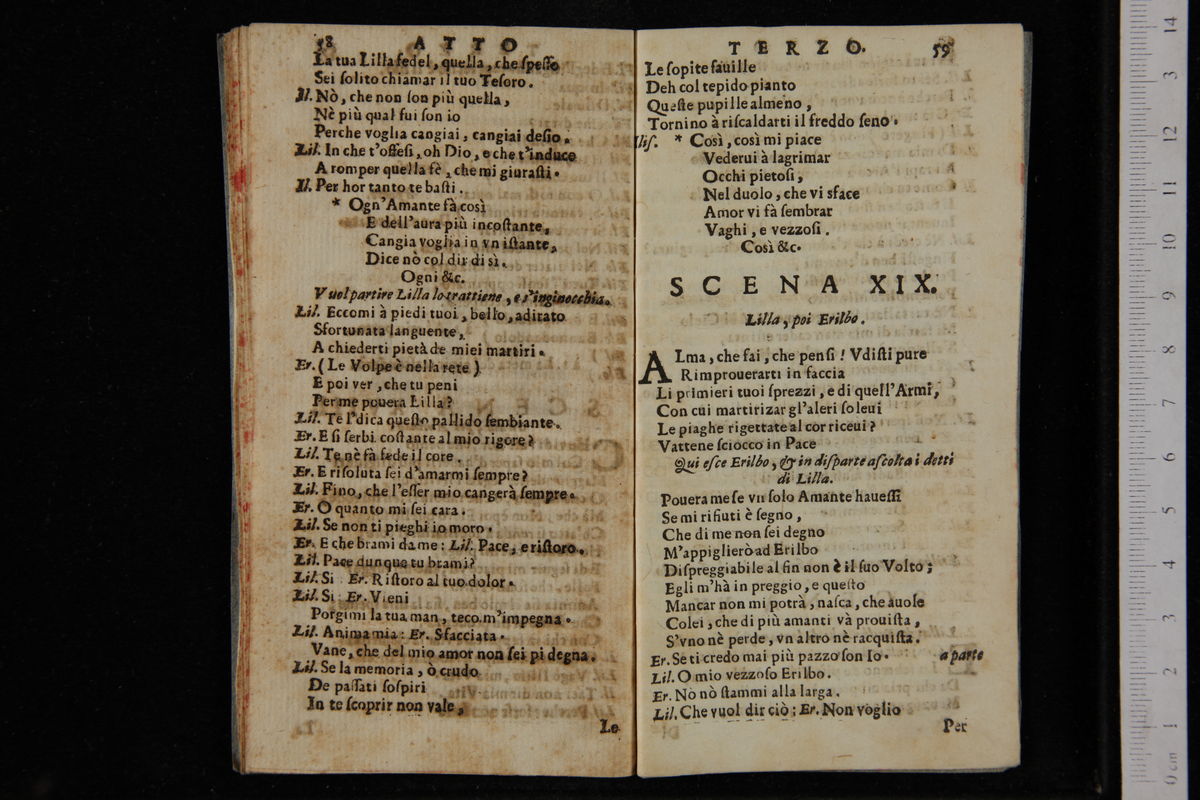 58 ATTO
La tua Lilla fedel, quella, che ſpeſſo
Sei ſolito chiamar il tuo Teſoro.
Il. Nò, che non ſon più quella,
Nè più qual fui ſon io
Perche voglia cangiai, cangiai deſio.
Lil. In che t'offeſi, oh Dio, e che t'induce
A romper quella fè, che mi giuraſti.
Il. Per hor tanto te baſti.
* Ogn'Amante fà così
E dell'aura più incoſtante,
Cangia voglia in vn iſtante,
Dice nò col dir di sì.
Ogni &c.
Vuol partire Lilla lo trattiene, e s'inginocchia.
Lil. Eccomi à piedi tuoi, bello, adirato
Sfortunata languente,
A chiederti pietà de miei martiri.
Er. (Le Volpe è nella rete)
E poi ver, che tu peni
Per me pouera Lilla?
Lil. Te l'dica queſto pallido ſembiante.
Er. E ſi ſerbi coſtante al mio rigore?
Lil. Te nè fà fede il core.
Er. E riſoluta ſei d'amarmi ſempre?
Lil. Fino, che l'eſſer mio cangerà ſempre.
Er. O quanto mi ſei cara.
Lil. Se non ti pieghi io moro.
Er. E che brami da me: Lil. Pace, e riſtoro.
Lil. Pace dunque tu brami?
Lil. Si: Er. Riſtoro al tuo dolor.
Lil. Si: Er. Vieni
Porgimi la tua man, teco m'impegna.
Lil. Anima mia: Er. Sfacciata.
Vane, che del mio amor non ſei pi degna.
Lil. Se la memoria, ò crudo
De paſſati ſoſpiri
In te ſcoprir non vale,
Le
TERZO. 59
Le ſopite fauille
Deh col tepido pianto
Queſte pupille almeno,
Tornino à riſcaldarti il freddo ſeno.
liſ. * Così, così mi piace
Vederui à lagrimar
Occhi pietoſi,
Nel duolo, che vi sface
Amor vi fà ſembrar
Vaghi, e vezzoſi.
Così &c.
SCENA XIX.
Lilla, poi Erilbo.
ALma, che fai, che penſi! Vdiſti pure
Rimprouerarti in faccia
Li primieri tuoi ſprezzi, e di quell'Armi,
Con cui martirizar gl'aleri ſoleui
Le piaghe rigettate al cor riceui?
Vattene ſciocco in Pace
Qui eſce Erilbo, & in diſparte aſcolta i detti
di Lilla.
Pouera me ſe vn ſolo Amante haueſſi
Se mi rifiuti è ſegno,
Che di me non ſei degno
M'appiglierò ad Erilbo
Diſpreggiabile al fin non è il ſuo Volto;
Egli m'hà in preggio, e queſto
Mancar non mi potrà, naſca, che auole
Colei, che di più amanti và prouiſta,
S'vno nè perde, vn altro nè racquiſta.
Er. Se ti credo mai più pazzo ſon Io. a parte
Lil. O mio vezzoſo Erilbo.
Er. Nò nò ſtammi alla larga.
Lil. Che vuol dir ciò: Er. Non voglio
Per
14
3
12
11
10
9
8
7
6
5
4
3
2
1
0 cm